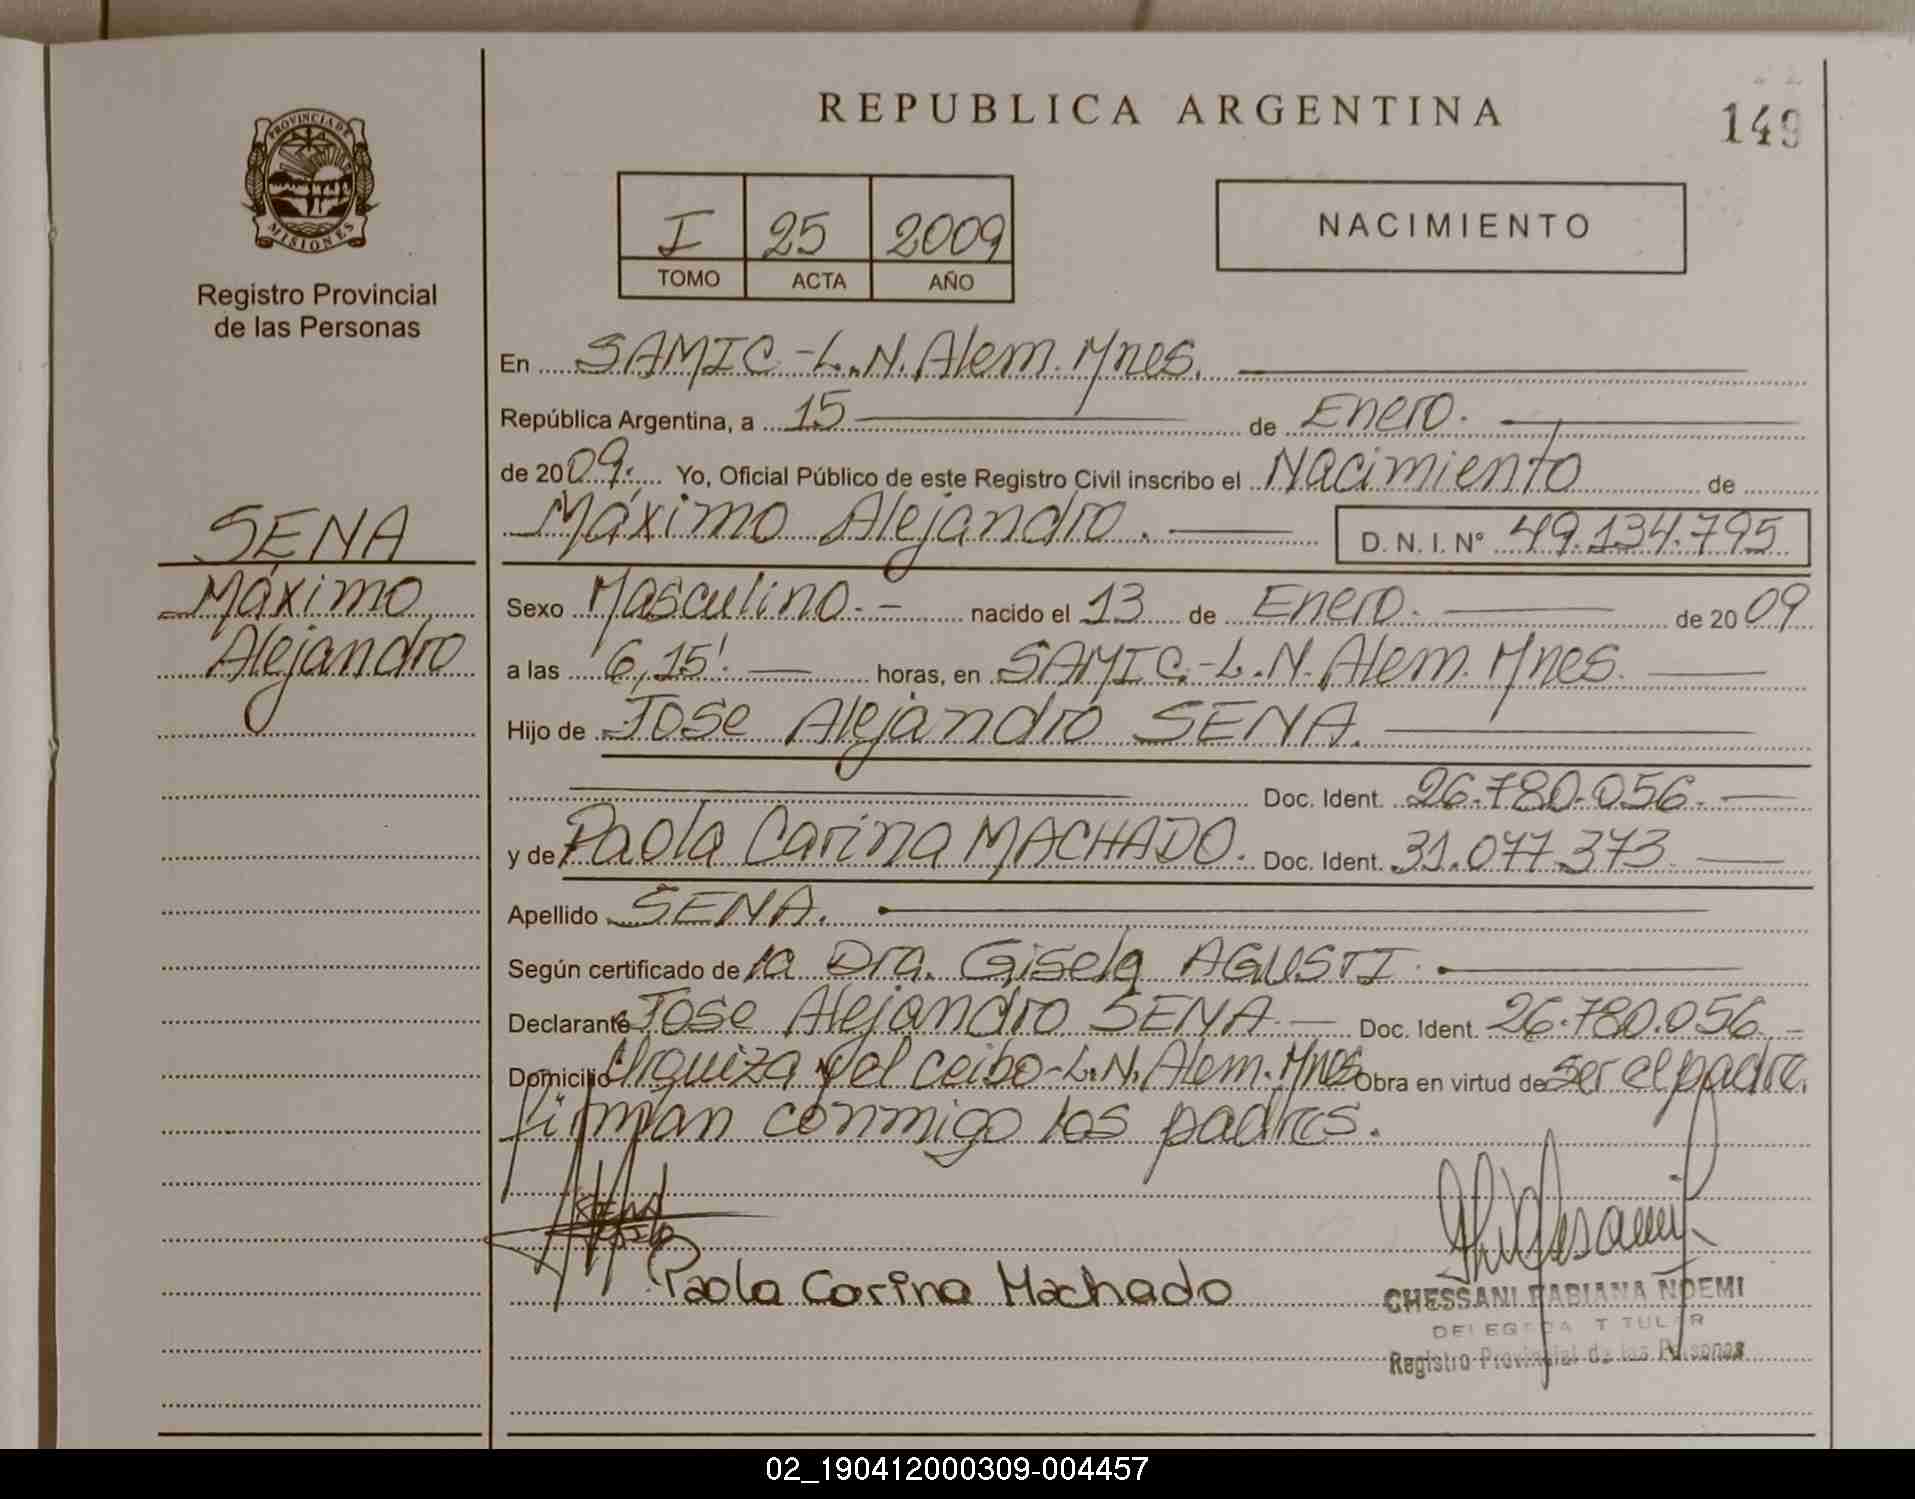 REPUBLICA ARGENTINA
149
PROVINCIA DE
MISIONES
Registro Provincial
de las Personas
I 25 2009
TOMO ACTA AÑO
NACIMIENTO
En SAMIC-L.N. Alem. Mnes.
República Argentina, a 15 de Enero.
de 2009. Yo, Oficial Público de este Registro Civil inscribo el Nacimiento de
Máximo Alejandro. D. N. I. Nº 49.134.795
SENA
Máximo
Alejandro
Sexo Masculino. nacido el 13 de Enero. de 2009
a las 6,15'. horas, en SAMIC.-L.N. Alem. Mnes.
Hijo de Jose Alejandro SENA.
Doc. Ident. 26.780.056.
y de Paola Carina MACHADO. Doc. Ident. 31.077.373
Apellido SENA.
Según certificado de la Dra. Gisela AGUSTI.
Declarante Jose Alejandro SENA Doc. Ident. 26.780.056
Domicilio Urquiza y del ceibo-L.N. Alem. Mnes Obra en virtud de ser el padre.
firman conmigo los padres.
Paola Carina Machado
CHESSANI FABIANA NOEMI
DELEGADA TITULAR
Registro Provincial de las Personas
02_190412000309-004457